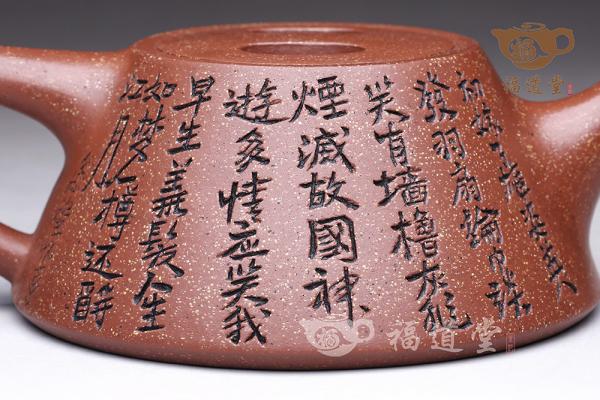 初嫁了雄姿英
發羽扇綸巾談
笑间墙櫓灰飛
煙滅故國神
遊多情应笑我
早生華髮人生
如梦一樽还酹
江月
福道堂
福道堂